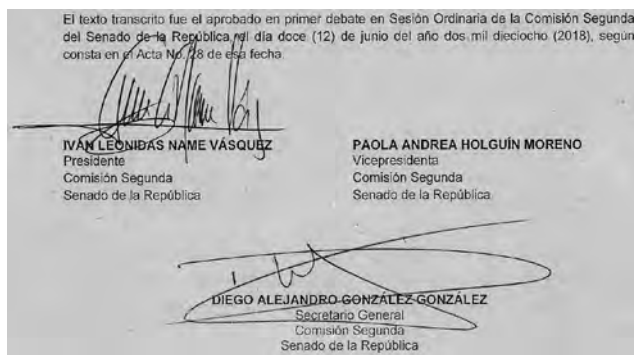 El texto transcrito fue el aprobado en primer debate en Sesión Ordinaria de la Comisión Segunda
del Senado de la República, el día doce (12) de junio del año dos mil dieciocho (2018), según
consta en el Acta No. 28 de esa fecha
IVÁN LEONIDAS NAME VÁSQUEZ
Presidente
Comisión Segunda
Senado de la República
PAOLA ANDREA HOLGUÍN MORENO
Vicepresidenta
Comisión Segunda
Senado de la República
DIEGO ALEJANDRO GONZÁLEZ GONZÁLEZ
Secretario General
Comisión Segunda
Senado de la República